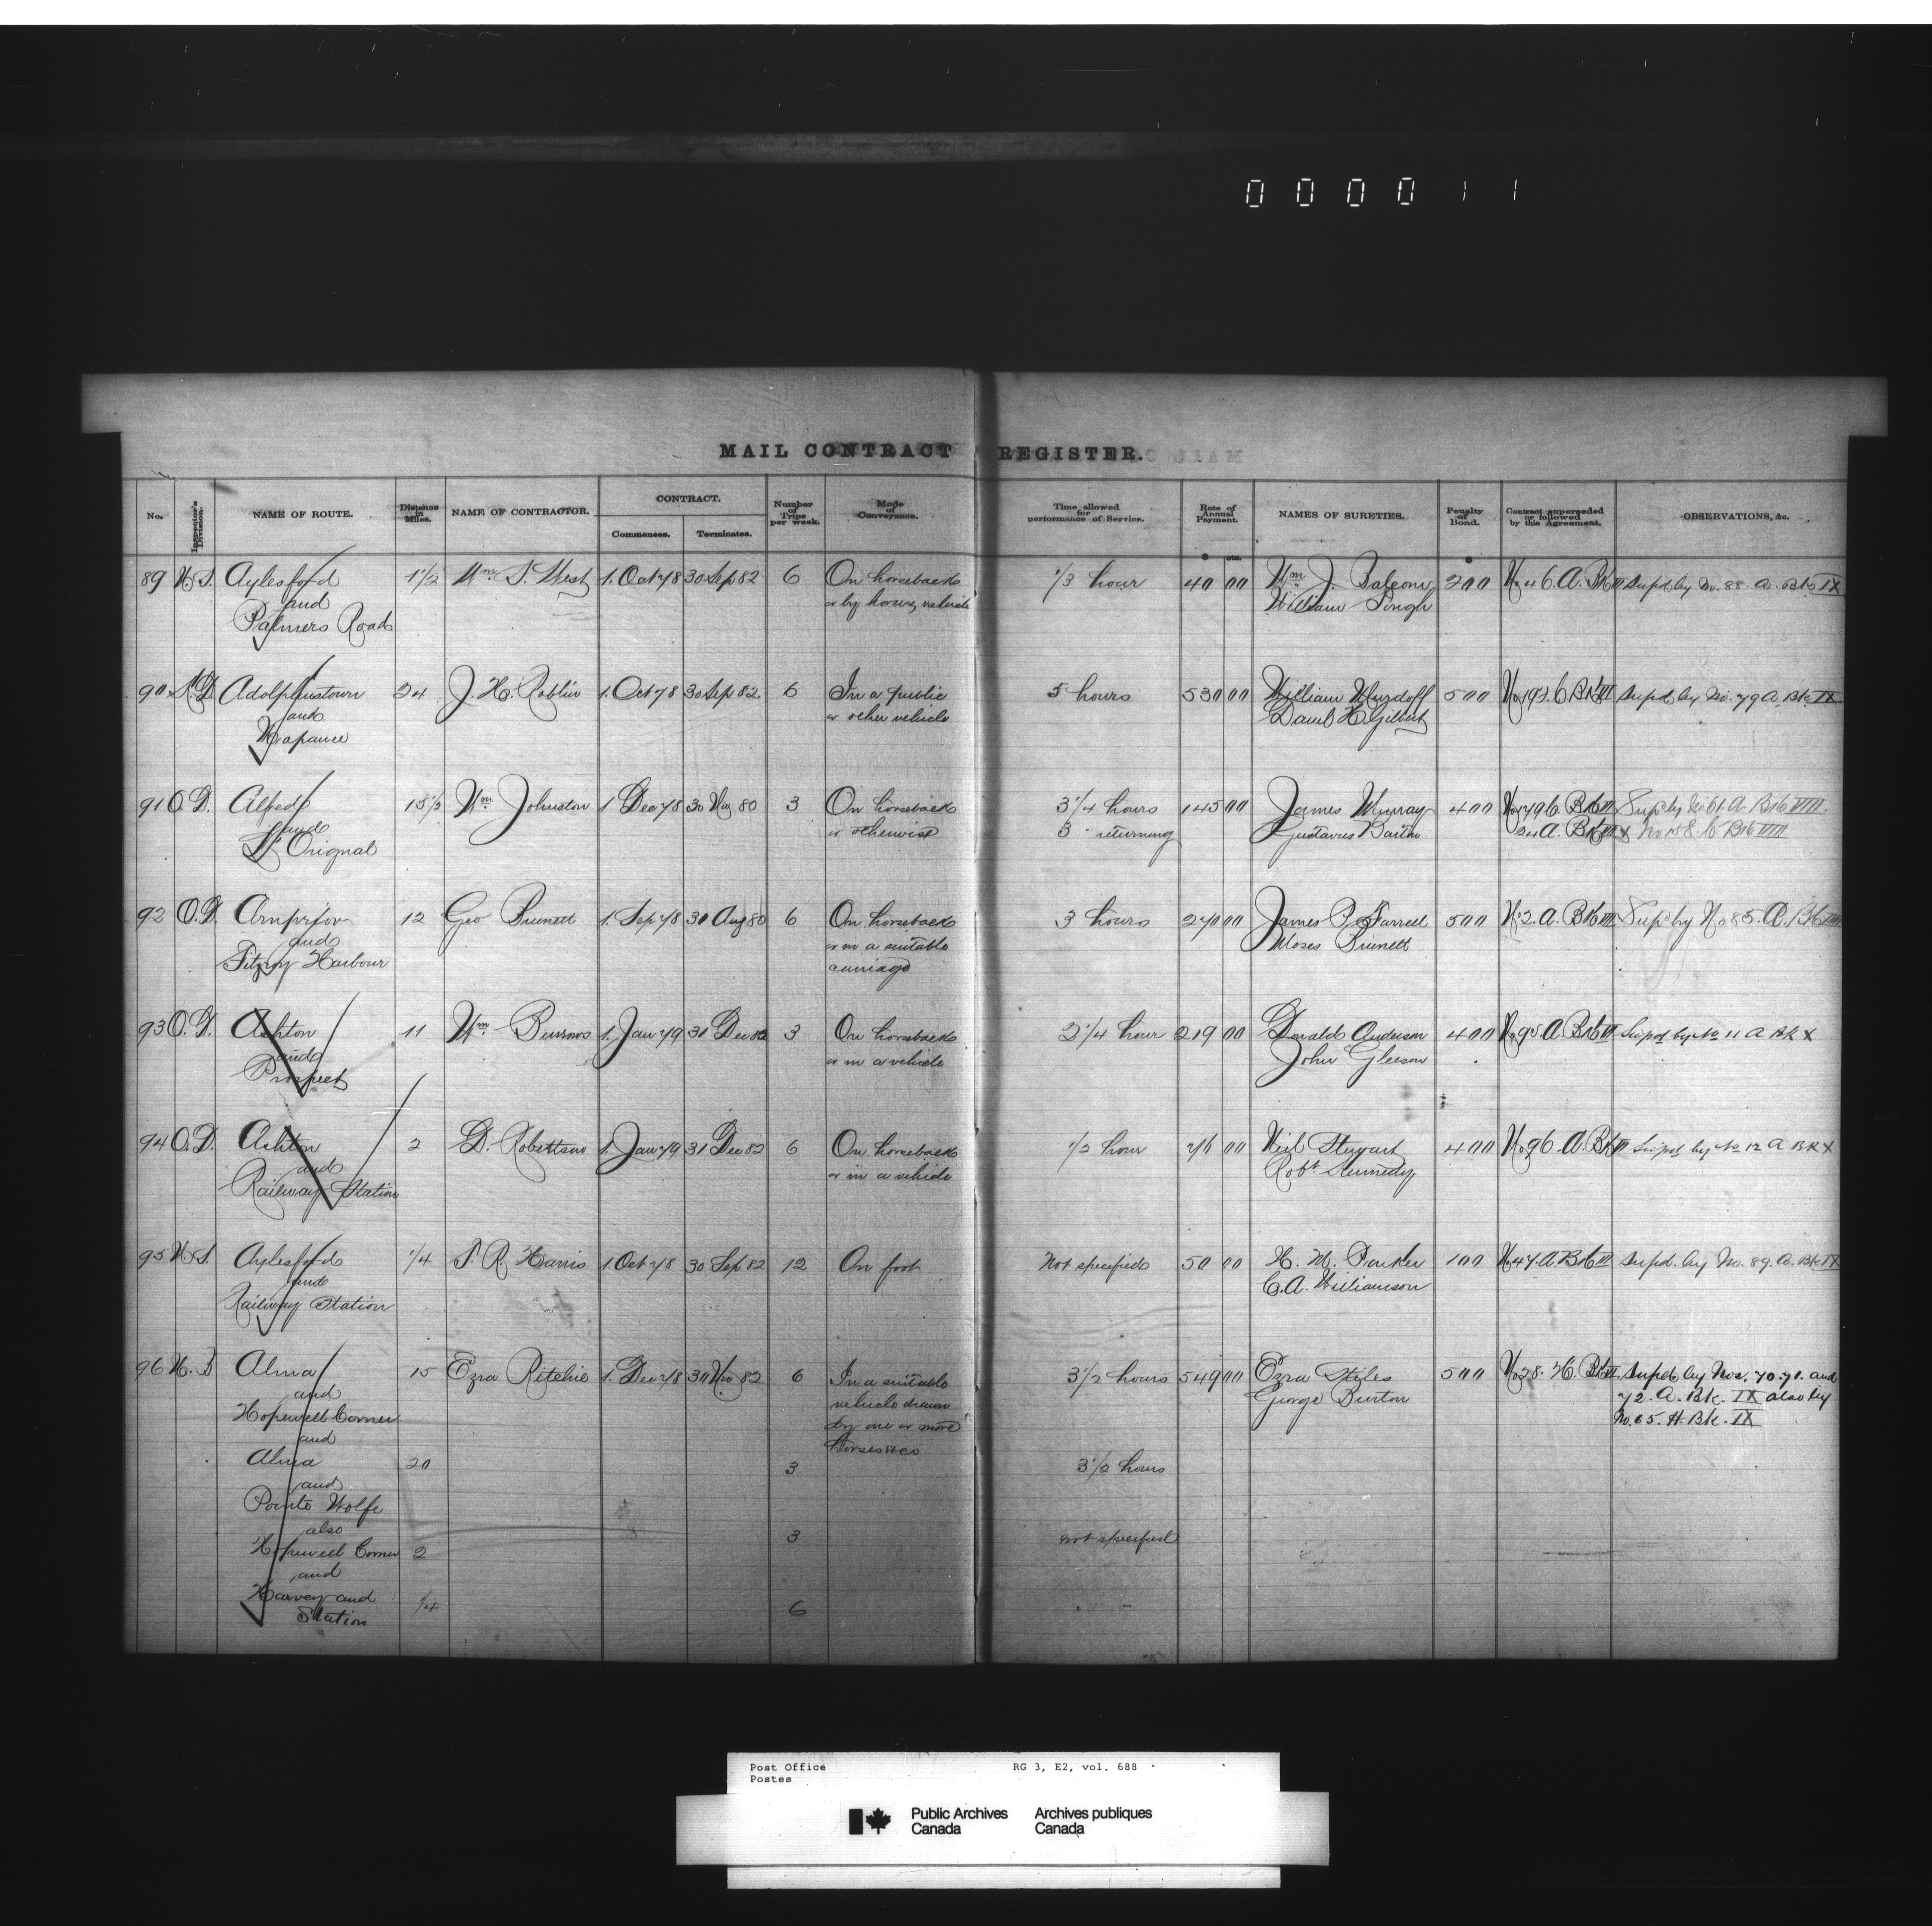 0 0 0 0 1 1
MAIL CONTRACT REGISTER.
No. Inspector's Division. NAME OF ROUTE. Distance in Miles. NAME OF CONTRACTOR. CONTRACT. Commences. Terminates. Number of Trips per week. Mode of Conveyance. Time allowed for performance of Service. Rate of Annual Payment. NAMES OF SURETIES. Penalty of Bond. Contract superseded or followed by this Agreement. OBSERVATIONS, &c.
$ cts. $
89 N.S. Aylesford 1 1/2 Wm. S. West 1. Oct 78 30 Sep 82 6 On horseback 1/3 hour 40 00 Wm J. Balcom 200 No 46. A. Bk VII Supd. by No. 88. A. Bk IX
and or by horse, vehicle William
Palmers Road
90 K.D. Adolphustown 24 J. H. Roblin 1. Oct 78 30 Sep 82 6 In a public 5 hours 530 00 William 500 No 192. C Bk VII Supd. by No. 79 A. Bk IX
and or other vehicle Daniel H. Gilbert
Napanee
91 O.D. Alfred 15 1/2 Wm. Johnston 1 Dec 78 30 Nov 80 3 On horseback 3 1/4 hours 145 00 James Murray 400 No 179 C. Bk VII Supd by No 61. A. Bk VIII
and or otherwise 3 " returning Gustavus 24 A. Bk VII & No 158. C Bk VIII
L'Orignal
92 O.D. Arnprior 12 Geo Brunett 1. Sep 78 31 Aug 80 6 On horseback 3 hours 270 00 James P. Farrell 500 No 2. A. Bk VII Supd by No 85. A. Bk VIII
and or in a suitable Moses Brunett
Fitzroy Harbour carriage
93 O.D. Ashton 11 Wm. Burrows 1. Jan 79 31 Dec 82 3 On horseback 2 1/4 hour 219 00 Donald Anderson 400 No 95. A. Bk VII Supd by No 11 A Bk X
and or in a vehicle John Gleeson
Prospect
94 O.D. Ashton 2 D. Robertson 1. Jan 79 31 Dec 82 6 On horseback 1/2 hour 76 00 Neil Stewart 400 No 96. A. Bk VII Supd by No 12 A Bk X
and or in a vehicle Robt. Kennedy
Railway Station
95 N.S. Aylesford 1/4 T. R. Harris 1. Oct 78 30 Sep 82 12 On foot Not specified 50 00 H. M. Parker 100 No 47. A Bk VII Supd. by No. 89. A. Bk IX
and C. A. Williamson
Railway Station
96 N.B Alma 15 Ezra Ritchie 1. Dec 78 30 Nov 82 6 In a suitable 3 1/2 hours 549 00 Ezra Stiles 500 No 28. H. Bk VII Supd. by Nos. 70. 71. and
and vehicle drawn George Burton 72. A. Bk. IX also by
Hopewell Corner by one or more No. 65. H. Bk. IX
and horses &c
Alma 20 3 3 1/2 hours
and
Pointe Wolfe
also
Hopewell Corner 2 3 not specified
and
Harvey and 1/4 6 " "
Station
Post Office RG 3, E2, vol. 688
Postes
Public Archives Archives publiques
Canada Canada